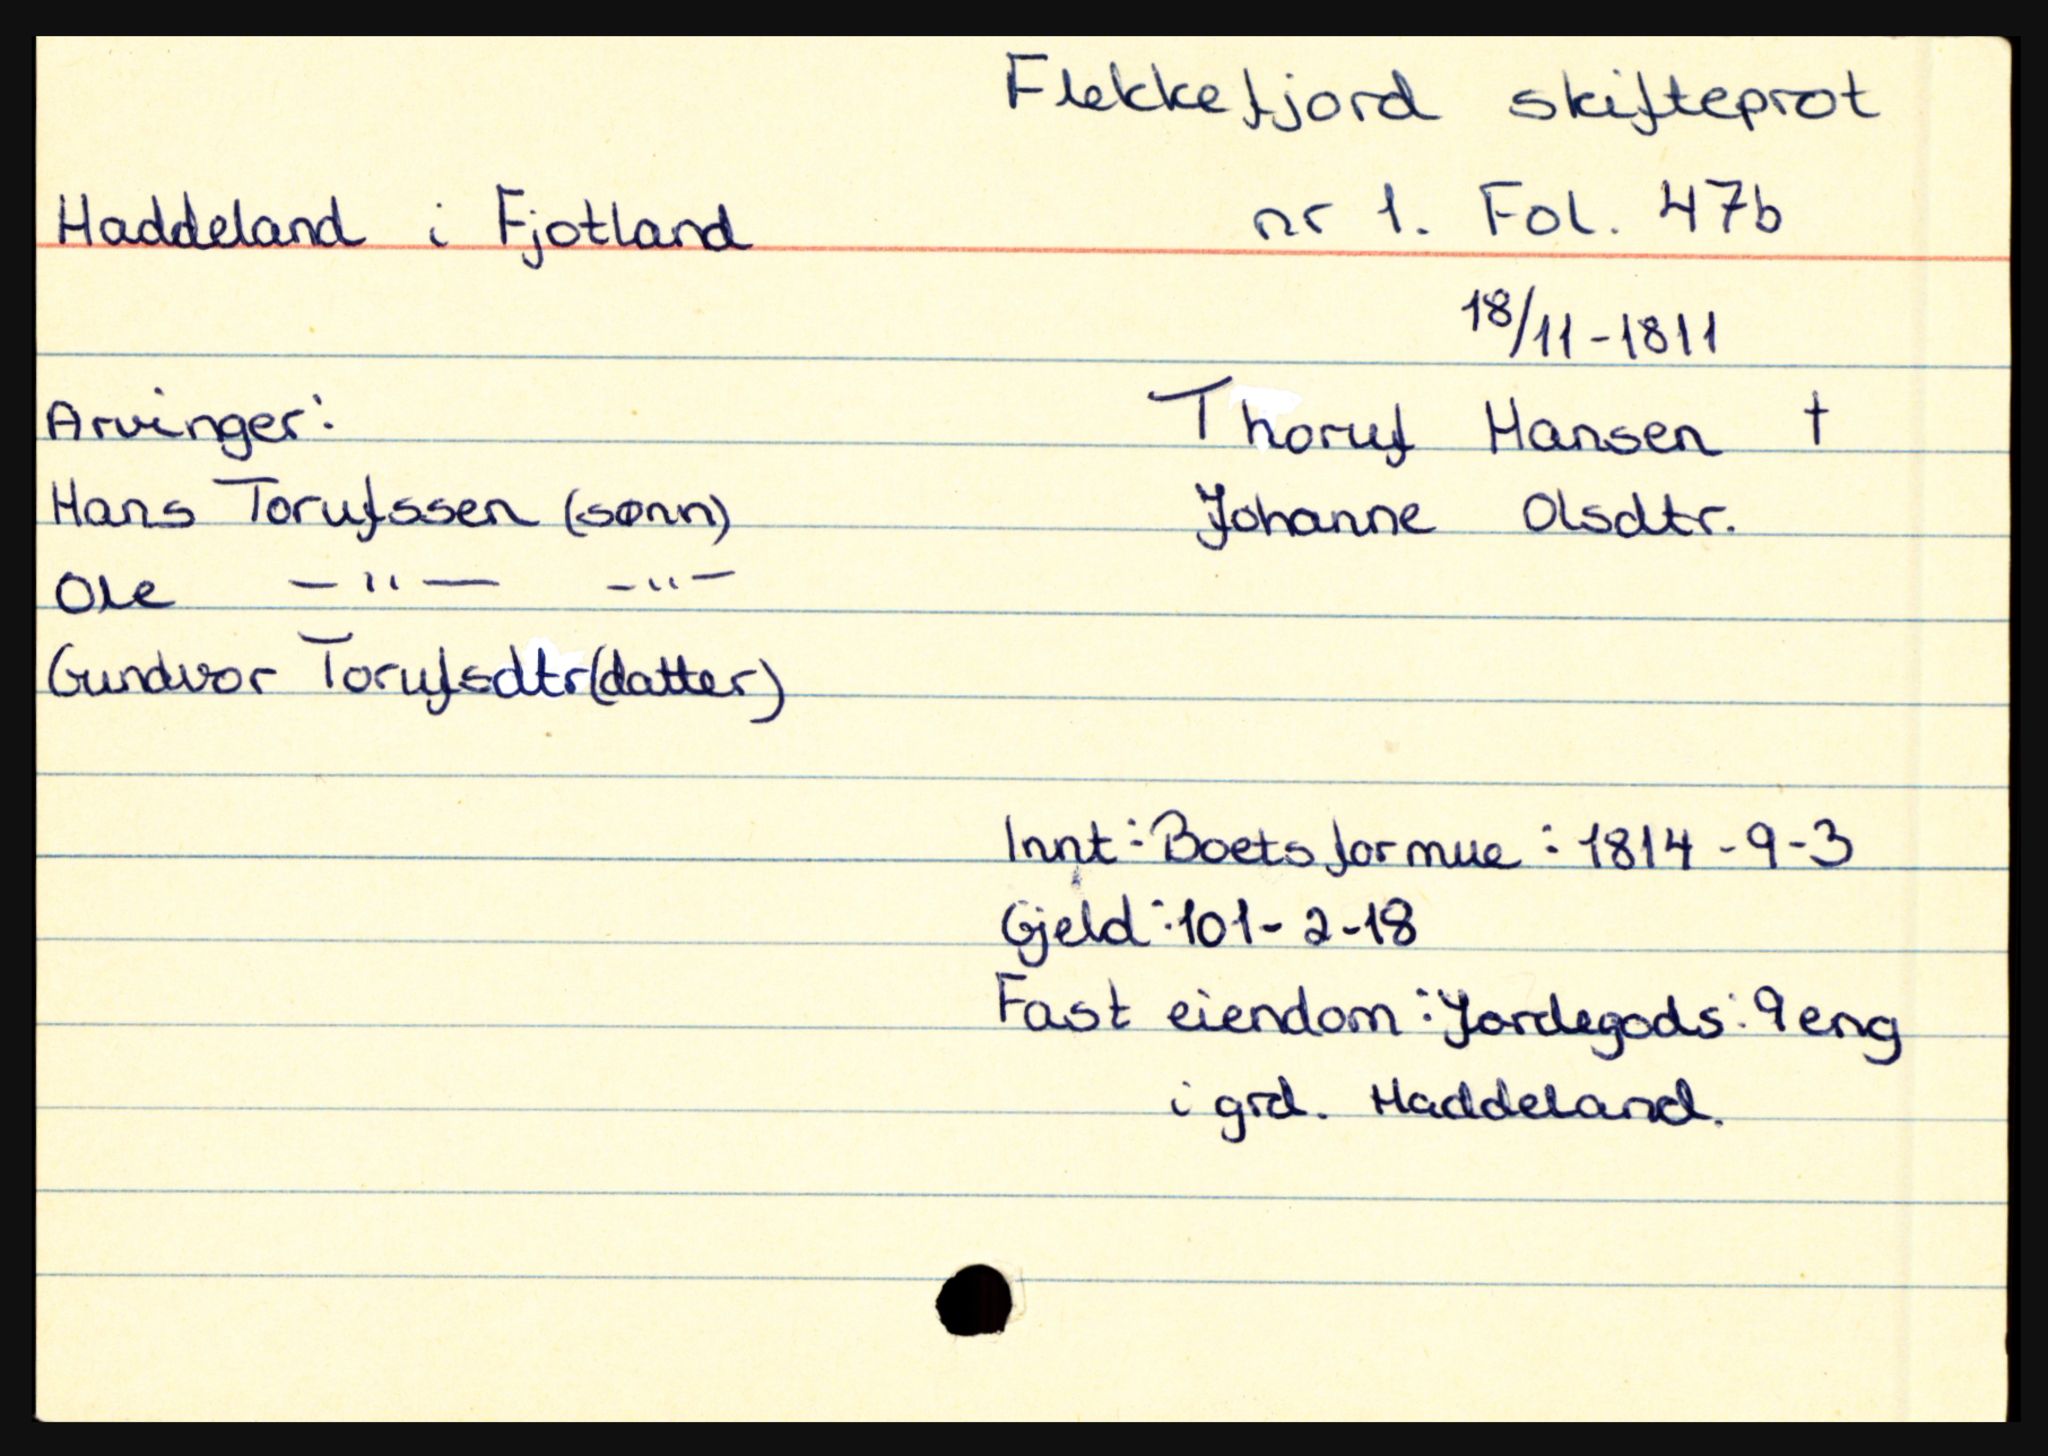 Flekkefjord skifteprot
Haddeland i Fjotland nr 1. Fol. 47b
18/11-1811
Arvinger: Thoruf Hansen †
Hans Torufssen (sønn) Johanne Olsdtr.
Ole —"— —"—
Gundvor Torufsdtr (datter)
Innt: Boets formue: 1814-9-3
Gjeld: 101-2-18
Fast eiendom: Jordegods: 9 eng
i grd. Haddeland.